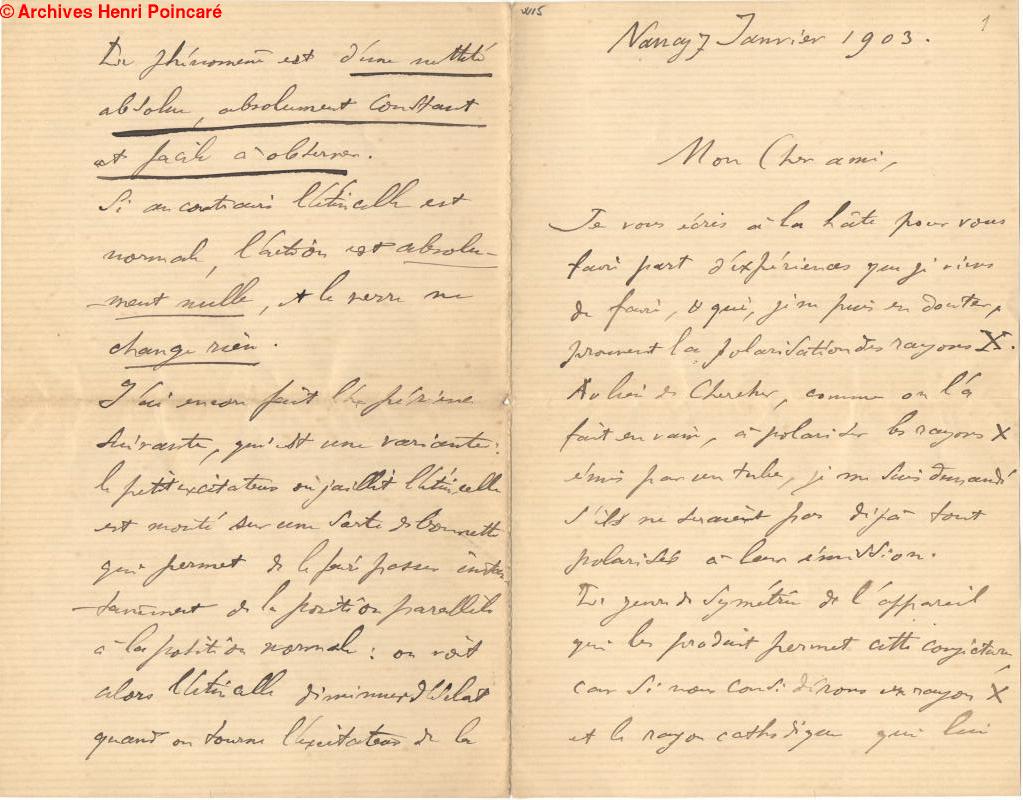 © Archives Henri Poincaré
Le phénomène est d'une netteté
absolue, absolument constant
et facile à observer.
Si au contraire l'étincelle est
normale, l'action est absolu-
-ment nulle, et le verre ne
change rien.
J'ai encore fait l'expérience
suivante, qui est une variante :
le petit excitateur où jaillit l'étincelle
est monté sur une sorte de bonnette
qui permet de le faire passer instan
-tanément de la position parallèle
à la position normale : on voit
alors l'étincelle diminuer d'éclat
quand on tourne l'excitateur de la
1
Nancy 7 Janvier 1903.
Mon Cher ami,
Je vous écris à la hâte pour vous
faire part d'expériences que je viens
de faire, & qui, je ne puis en douter,
prouvent la polarisation des rayons X.
Au lieu de chercher, comme on l'a
fait en vain, à polariser les rayons X
émis par un tube, je me suis demandé
s'ils ne seraient pas déjà tout
polarisés à leur émission.
Le genre de symétrie de l'appareil
qui les produit permet cette conjecture,
car si nous considérons un rayon X
et le rayon cathodique qui lui